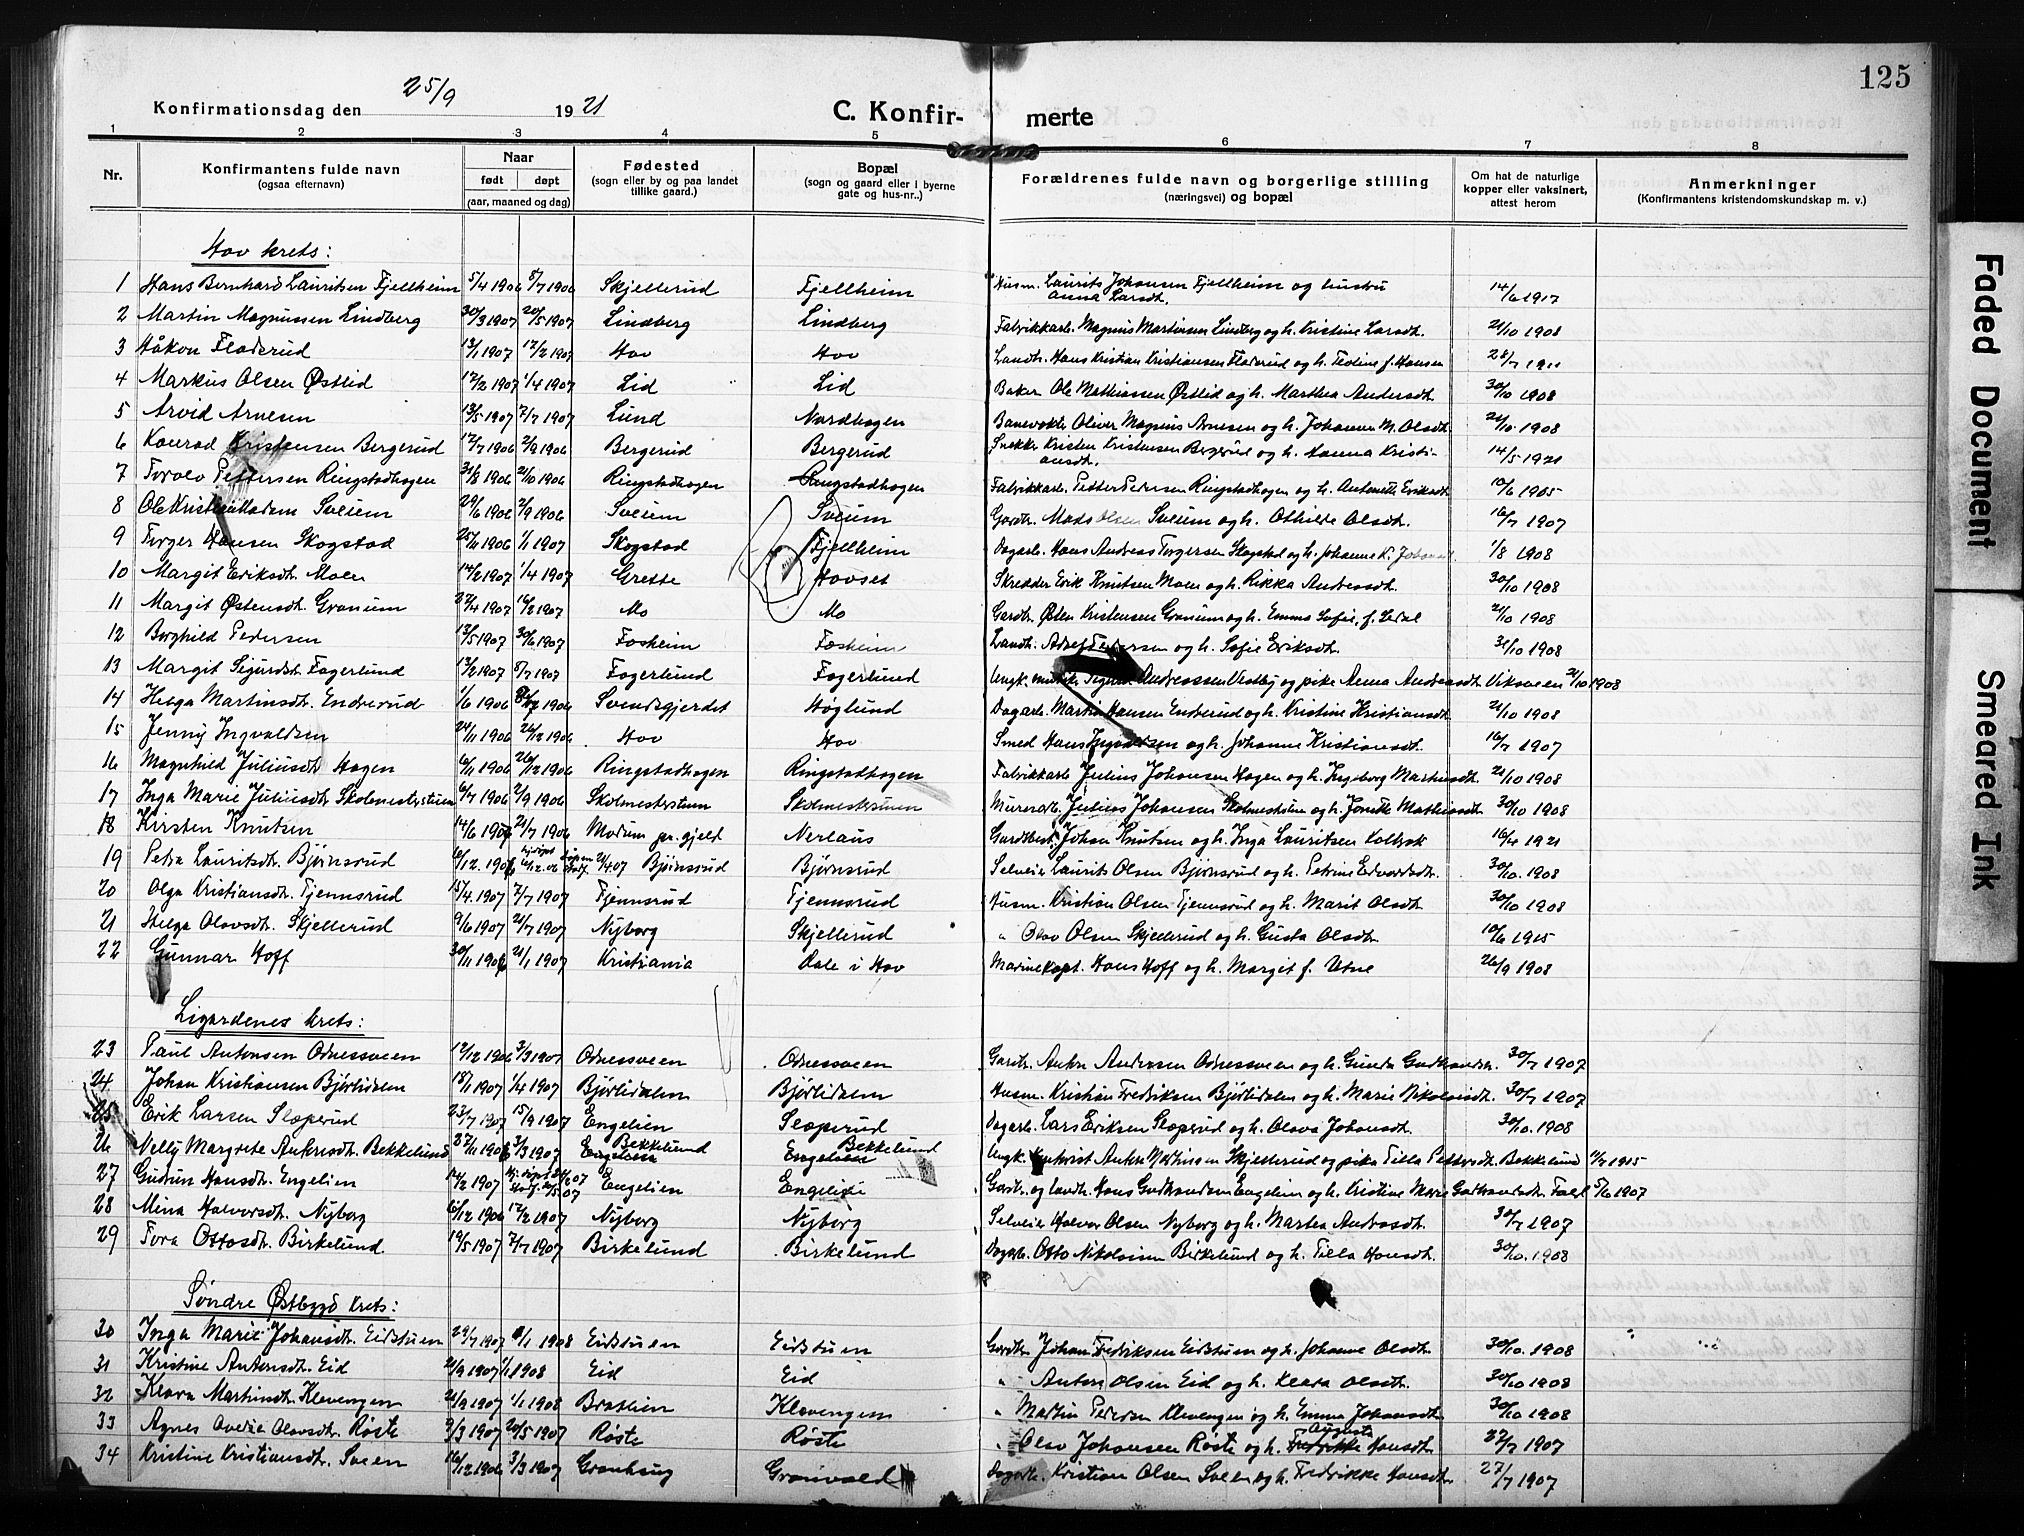 125
Konfirmationsdag den 25/9 1921
C. Konfir- merte
1 2 3 4 5 6 7 8
Nr.
Konfirmantens fulde navn
(ogsaa efternavn)
Naar
født døpt
(aar, maaned og dag)
Fødested
(sogn eller by og paa landet
tillike gaard.)
Bopæl
(sogn og gaard eller i byerne
gate og hus-nr..)
Forældrenes fulde navn og borgerlige stilling
(næringsvei) og bopæl
Om hat de naturlige
kopper eller vaksinert,
attest herom
Anmerkninger
(Konfirmantens kristendomskundskap m. v.)
Hov krets:
1 Hans Bernhard Lauritsen Fjellheim 5/4 1906 8/7 1906 Skjellerud Fjellheim Husm. Laurits Johansen Fjellheim og hustru Anna Larsdt. 14/6 1917
2 Martin Magnussen Lindberg 30/3 1907 20/5 1907 Lindberg Lindberg Fabrikkarb. Magnus Martinsen Lindberg og h. Kristine Larsdt. 21/10 1908
3 Håkon Fladerud 13/1 1907 17/2 1907 Hov Hov Landh. Hans Kristian Kristiansen Fladerud og h. Tedine f. Hansen 28/7 1911
4 Markus Olsen Østlid 17/2 1907 1/4 1907 Lid Lid Baker Ole Mathiassen Østlid og h. Marthea Andersdt. 30/10 1908
5 Arvid Arnesen 13/5 1907 7/7 1907 Lund Nordhagen Banevokt. Oliver Magnus Arnesen og h. Johanne M. Olsdt. 21/10 1908
6 Konrad Kristensen Bergerud 17/7 1906 2/9 1906 Bergerud Bergerud Snekker Kristen Kristensen Bergerud og h. Hanna Kristiansdt. 14/5 1921
7 Torolv Pettersen Ringstadhagen 31/8 1906 21/10 1906 Ringstadhagen Ringstadhagen Fabrikkarb. Petter Pedersen Ringstadhagen og h. Antonette Eriksdt. 10/6 1905
8 Ole Kristian Madsen Sveum 29/6 1906 2/9 1906 Sveum Sveum Gardbr. Mads Olsen Sveum og h. Othilde Olsdt. 16/7 1907
9 Torger Hansen Skogstad 25/11 1906 1/1 1907 Skogstad Fjellheim Dagarb. Hans Andreas Torgersen Skogstad og h. Johanne K. 1/8 1908
10 Margit Eriksdt. Moen 14/2 1907 1/4 1907 Grette Hovset Skredder Erik Knutsen Moen og h. Rikka Andersdt. 30/10 1908
11 Margit Østensdt. Granum 27/4 1907 16/2 1907 Mo Mo Gardbr. Østen Kristensen Granum og h. Emma Sofie, f. 21/10 1908
12 Borghild Pedersen 13/5 1907 30/6 1907 Fosheim Fosheim Landh. Pedersen og h. Sofie Eriksdt. 31/10 1908
13 Margit Sigurdsdt. Fagerlund 13/2 1907 8/7 1907 Fagerlund Fagerlund Ungk. Andreassen Vestby og pike Anna Andreasdt. Viksveen 21/10 1908
14 Helga Martinsdt. Enderud 1/6 1906 1906 Svendsgjerdet Høglund Dagarb. Martin Hansen Enderud og h. Kristine Kristiansdt. 21/10 1908
15 Jenny Ingvaldsen 24/11 1906 26/12 1906 Hov Hov Smed Hans Ingvaldsen og h. Johanne Kristiansdt. 16/7 1907
16 Magnhild Juliusdt. Hagen 6/11 1906 26/12 1906 Ringstadhagen Ringstadhagen Fabrikkarb. Julius Johansen Hagen og h. Ingeborg Martinsdt. 21/10 1908
17 Inga Marie Juliusdt. Skolmesterstuen 6/7 1906 2/9 1906 Skolmesterstuen Skolmesterstuen Murerarb. Julius Johansen Skolmesterstuen og h. Jonette Mathiasdt. 30/10 1908
18 Kirsten Knutsen 14/6 1907 21/7 1906 Modum pr.gjeld Nerlaus Gardbest. Johan Knutsen og h. Inga Lauritsen 16/4 1921
19 Petra Lauritsdt. Bjørnsrud 6/12 1906 hj.døpt 6/12.06 4/4.07 Bjørnsrud Bjørnsrud Selveier Laurits Olsen Bjørnsrud og h. Petrine Edvardsdt. 30/10 1908
20 Olga Kristiansdt. Tjennsrud 15/4 1907 7/7 1907 Tjennsrud Tjennsrud Husm. Kristian Olsen Tjennsrud og h. Marit Olsdt. 30/10 1908
21 Helga Olavsdt. Skjellerud 9/6 1907 21/7 1907 Nyborg Skjellerud " Olav Olsen Skjellerud og h. Gusta Olsdt. 10/6 1915
22 Gunnar Hoff 30/11 1906 21/1 1907 Kristiania Dale i Hov Marinekapt. Hans Hoff og h. Margit f. Utne 26/9 1908
Ligardenes krets:
23 Paul Antonsen Odnessveen 12/12 1906 3/3 1907 Odnessveen Odnessveen Gardbr. Anton Andersen Odnessveen og h. Gunda Gudbrandsdt. 30/7 1907
24 Johan Kristiansen Bjørlidalen 18/1 1907 1/4 1907 Bjørlidalen Bjørlidalen Husm. Kristian Fredriksen Bjørlidalen og h. Marie Nikolaisdt. 30/7 1907
25 Erik Larsen Sloperud 23/7 1907 15/9 1907 Engelien Sloperud Dagarb. Lars Eriksen Sloperud og h. Olava Johansdt. 30/10 1908
26 Nelly Margrete Antonsdt. Bekkelund 27/11 1906 3/3 1907 Engelien Bekkelund Engelien Bekkelund Ungk. Anton Martinsen Skjellerud og pike Tilla Pettersdt. Bekkelund 1/7 1915
27 Gudrun Hansdt. Engelien 14/2 1907 hj. døpt 07 Engelien Engelien Gardbr. og landh. Hans Gudbrandsen Engelien og h. Kristine Marie Gudbrandsdt. 5/6 1907
28 Mina Halvorsdt. Nyborg 6/12 1906 17/2 1907 Nyborg Nyborg Selveier Halvor Olsen Nyborg og h. Martea Andersdt. 30/7 1907
29 Tora Ottosdt. Birkelund 19/5 1907 7/7 1907 Birkelund Birkelund Dagarb. Otto Nikolaisen Birkelund og h. Tilla Hansdt. 30/10 1908
Søndre Østbygd krets:
30 Inga Marie Johansdt. Eidstuen 29/7 1907 1/1 1908 Eidstuen Eidstuen Gardbr. Johan Fredriksen Eidstuen og h. Johanne Olsdt. 30/10 1908
31 Kristine Antonsdt. Eid 21/9 1907 1/1 1908 Eid Eid " Anton Olsen Eid og h. Klara Olsdt. 30/10 1908
32 Klara Martinsdt. Klevengen 21/9 1907 1/1 1908 Bratlien Klevengen " Martin Pedersen Klevengen og h. Emma Johansdt. 30/10 1908
33 Agnes Olavsdt. Røste 9/3 1907 20/5 1907 Røste Røste " Olav Johansen Røste og h. Fredrikke Auguste Hansdt. 27/7 1907
34 Kristine Kristiansdt. Sveen 16/12 1906 3/3 1907 Granhaug Granvold Dagarb. Kristian Olsen Sveen og h. Fredrikke Hansdt. 27/7 1907
Faded Document
Smeared Ink